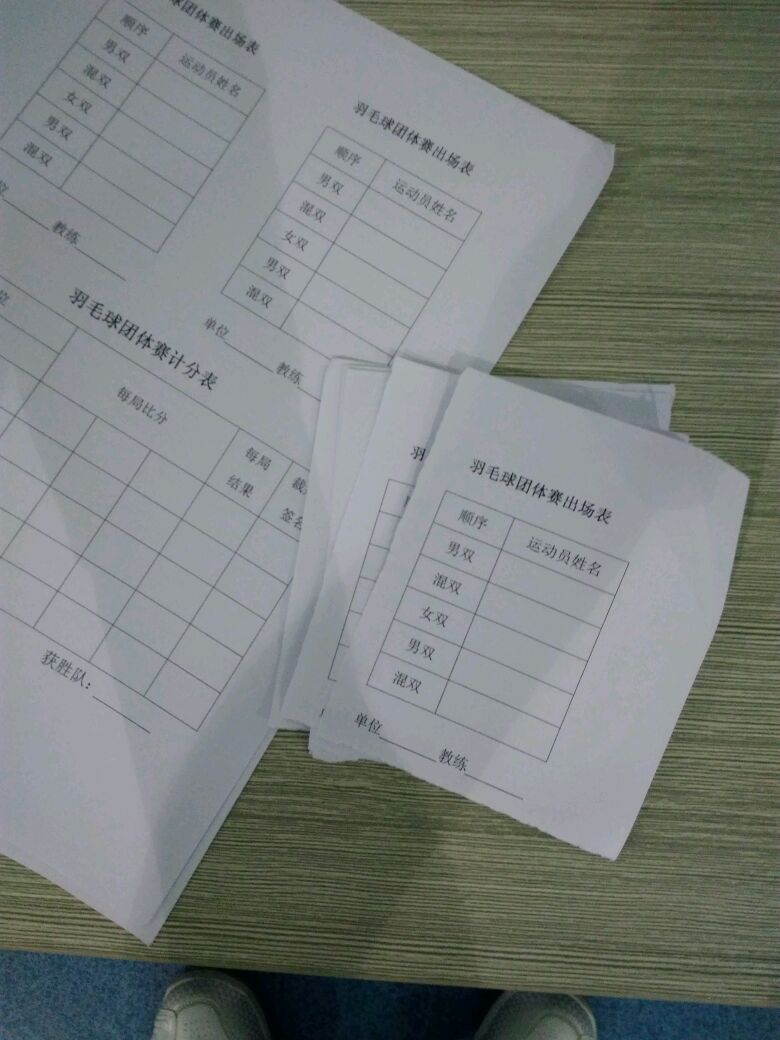 球团体赛出场表
顺序 运动员姓名
男双
混双
女双
男双
混双
教练
羽毛球团体赛出场表
顺序 运动员姓名
男双
混双
女双
男双
混双
单位 教练
羽毛球团体赛计分表
每局比分 每局结果
签名
获胜队：
羽
羽毛球团体赛出场表
顺序 运动员姓名
男双
混双
女双
男双
混双
单位 教练